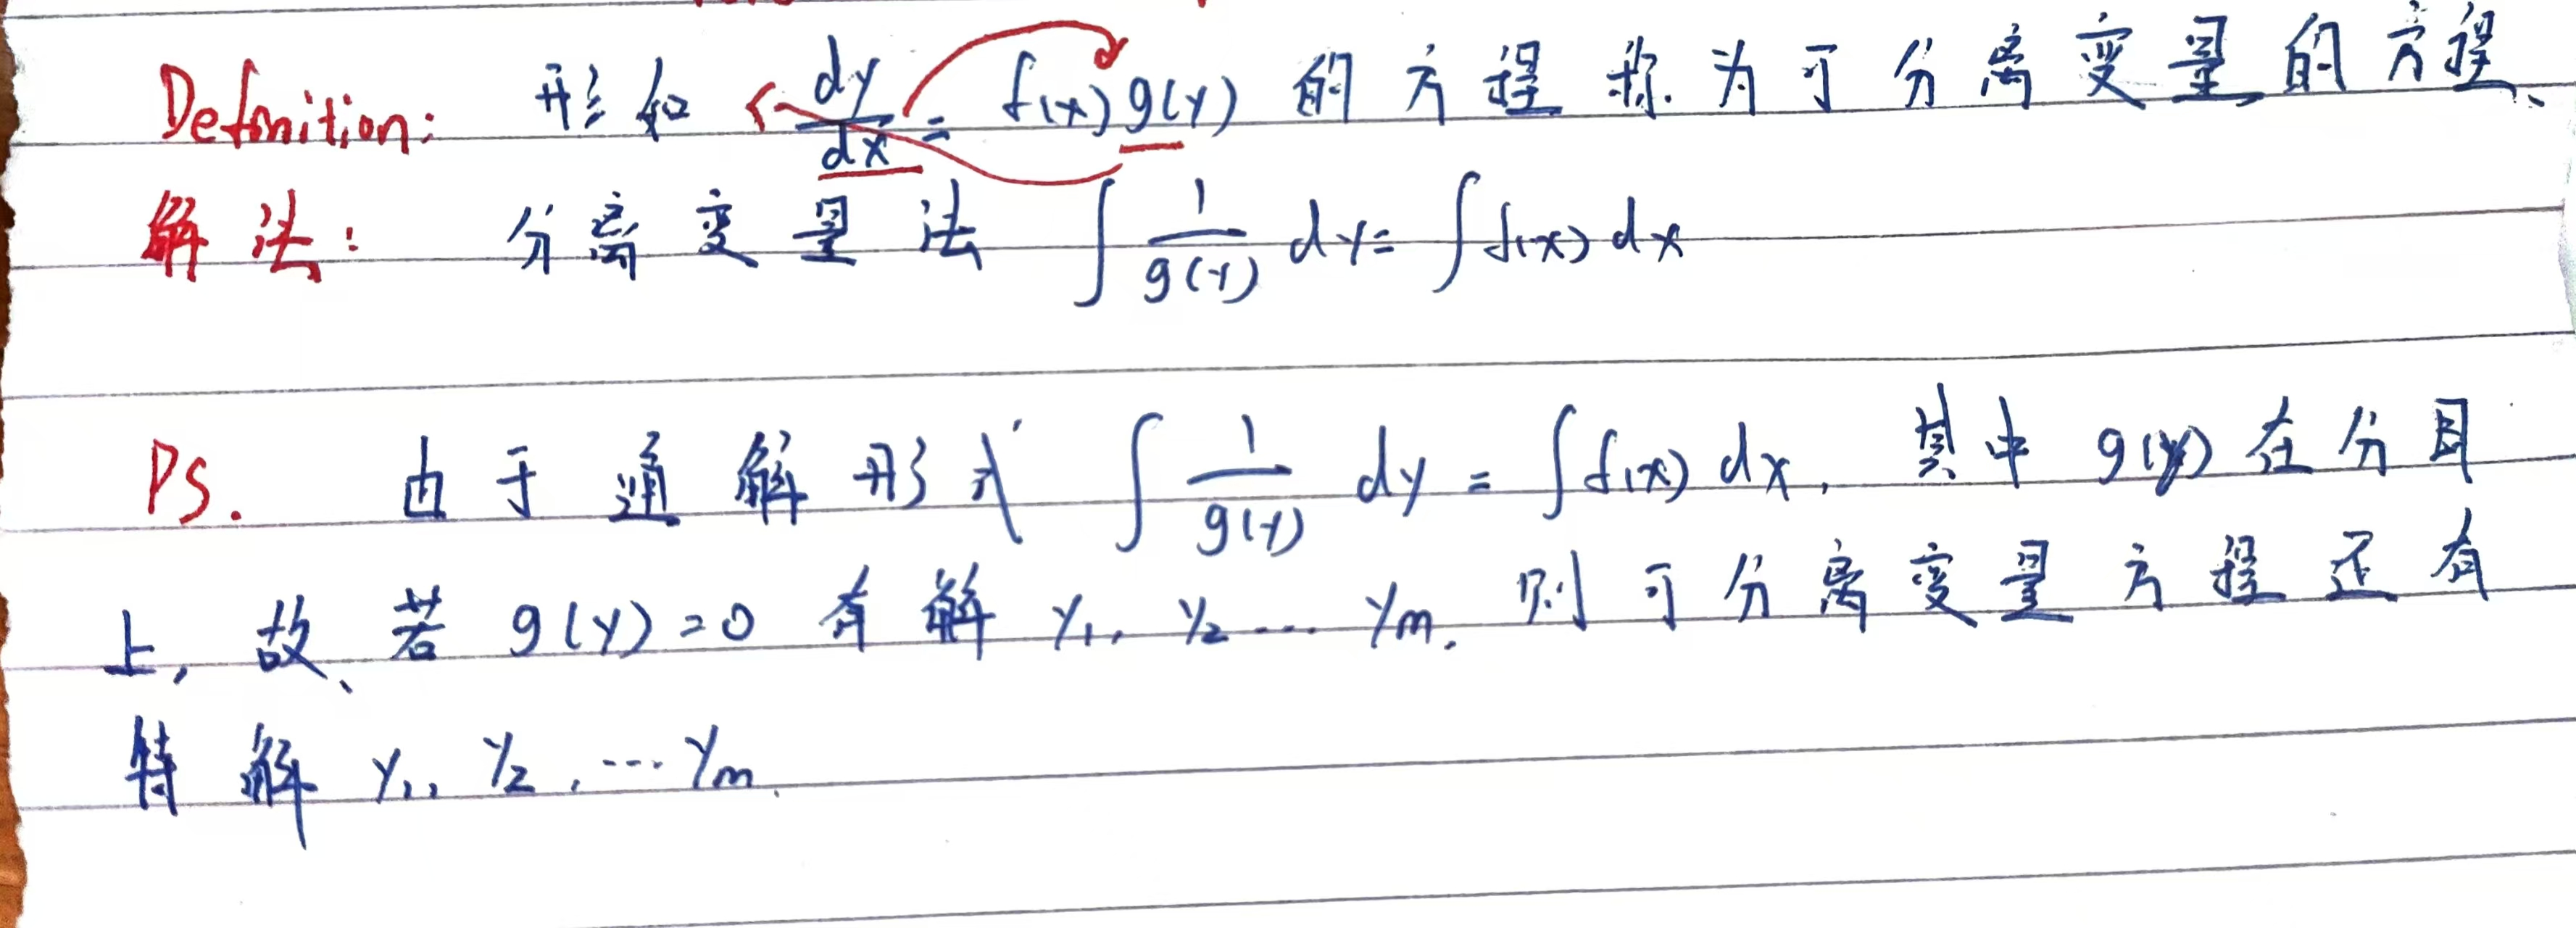 Definition: 形如 dy/dx = f(x)g(y) 的方程称为可分离变量的方程、
解法: 分离变量法 ∫ 1/g(y) dy = ∫ f(x) dx
PS. 由于通解形式 ∫ 1/g(y) dy = ∫ f(x) dx, 其中 g(y) 在分母
上, 故、若 g(y)=0 有解 y₁, y₂ ... yₘ. 则可分离变量方程还有
特解 y₁, y₂, ... yₘ.